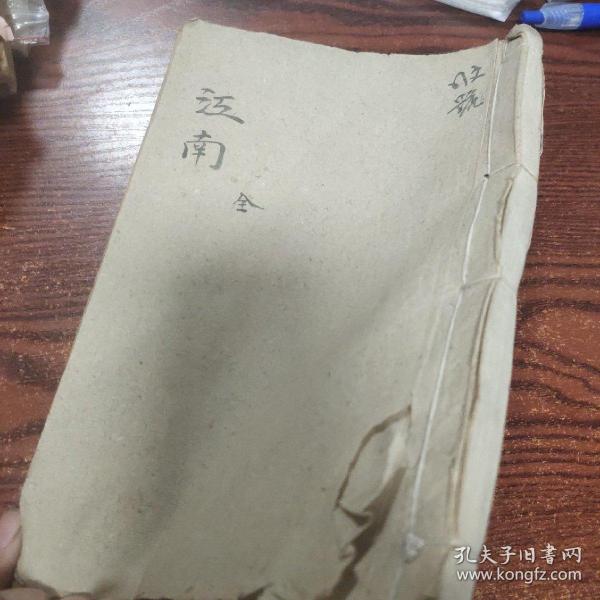 江南
全
號
孔夫子旧書网
www.kongfz.com